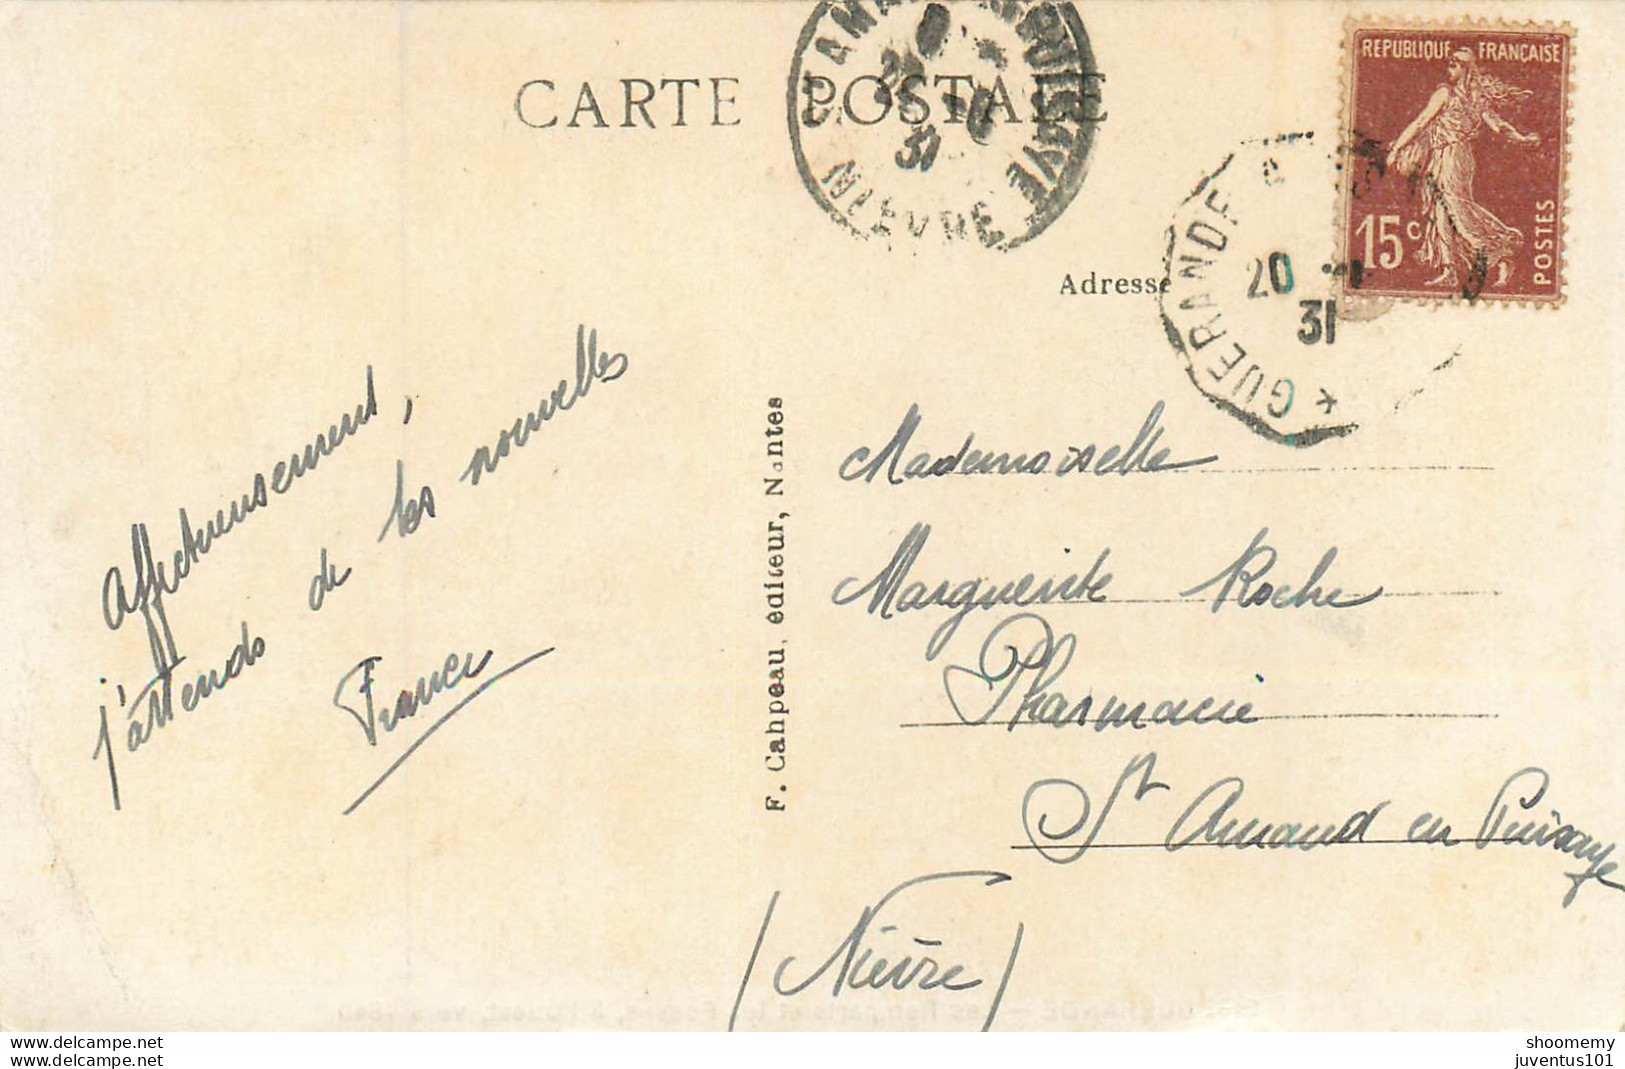 CARTE POSTALE
REPUBLIQUE FRANÇAISE
15c
POSTES
NIEVRE
31
GUERANDE
20
31
*
Adresse
Affectueusement,
j'attends de tes nouvelles
France
F. Cahpeau, éditeur, Nantes
Mademoiselle
Marguerite Roche
Pharmacie
St Amand en Puisaye
(Nièvre)
shoomemy
juventus101